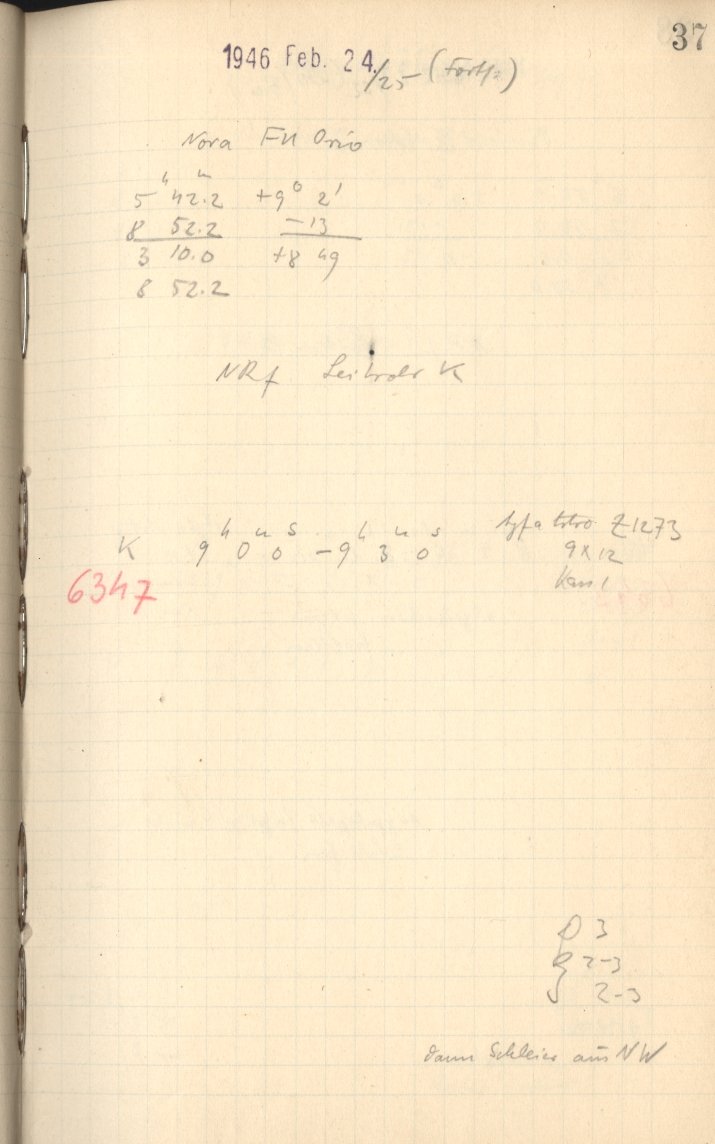 37
1946 Feb. 24./25 (Forts.)
Nova FU Orio
5 h 42.2 m +9° 2'
8 52.2 -13
3 10.0 +8 49
8 52.2
NRf Leitrohr K
K 9 h 0 m 0 s - 9 h 3 m 0 s Agfa Astro Z1273
9x12
6347
Kass 1
D 3
2-3
2-3
dann Schleier aus NW